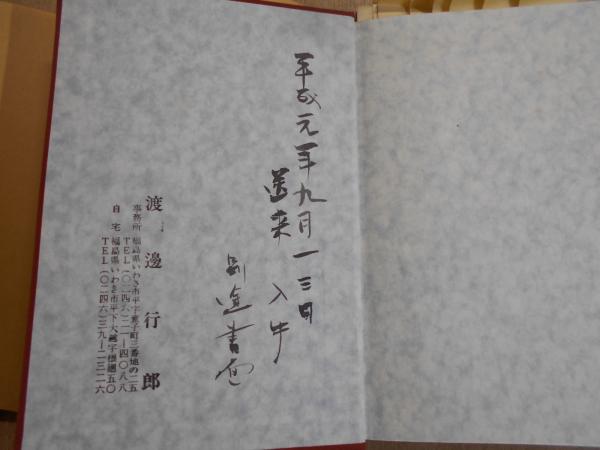 平成元年九月一三日
送来 入手
渡邊行郎
事務所 福島県いわき市平字童子町三番地の二五
TEL(〇二四六)二二―四〇八八
自宅 福島県いわき市平下大越字根廻五〇
TEL(〇二四六)三九―二三二六